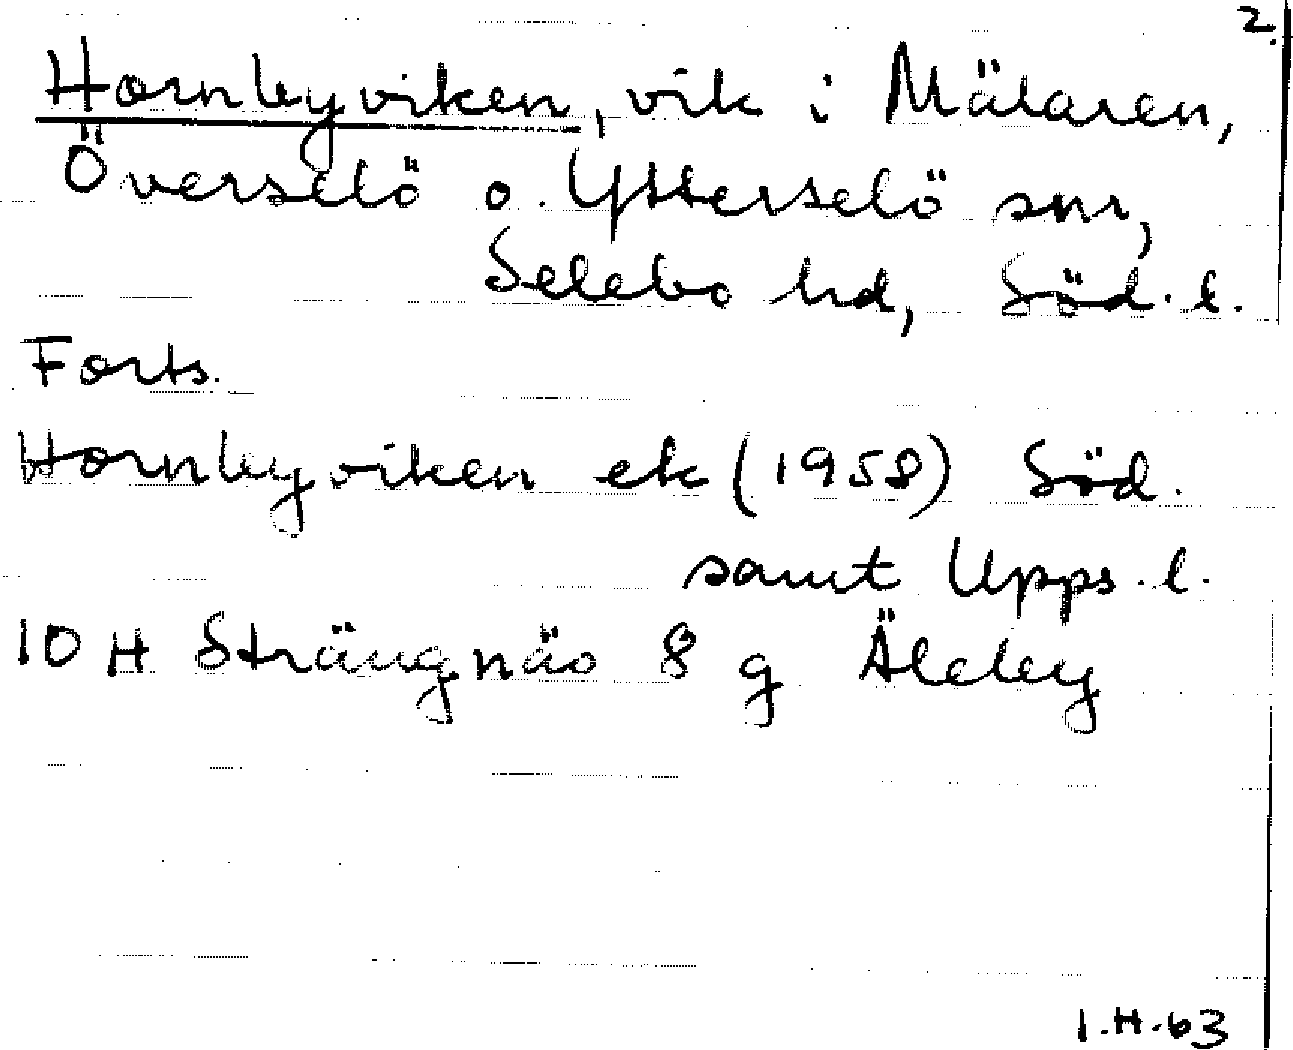 2.
Hornbyviken, vik i Mälaren,
Överselö o. Ytterselö snr,
Selebo hd, Söd. l.
Forts.
Hornbyviken ek (1958) Söd.
samt Upps. l.
10 H Strängnäs 8 g Äleby
I.H.63